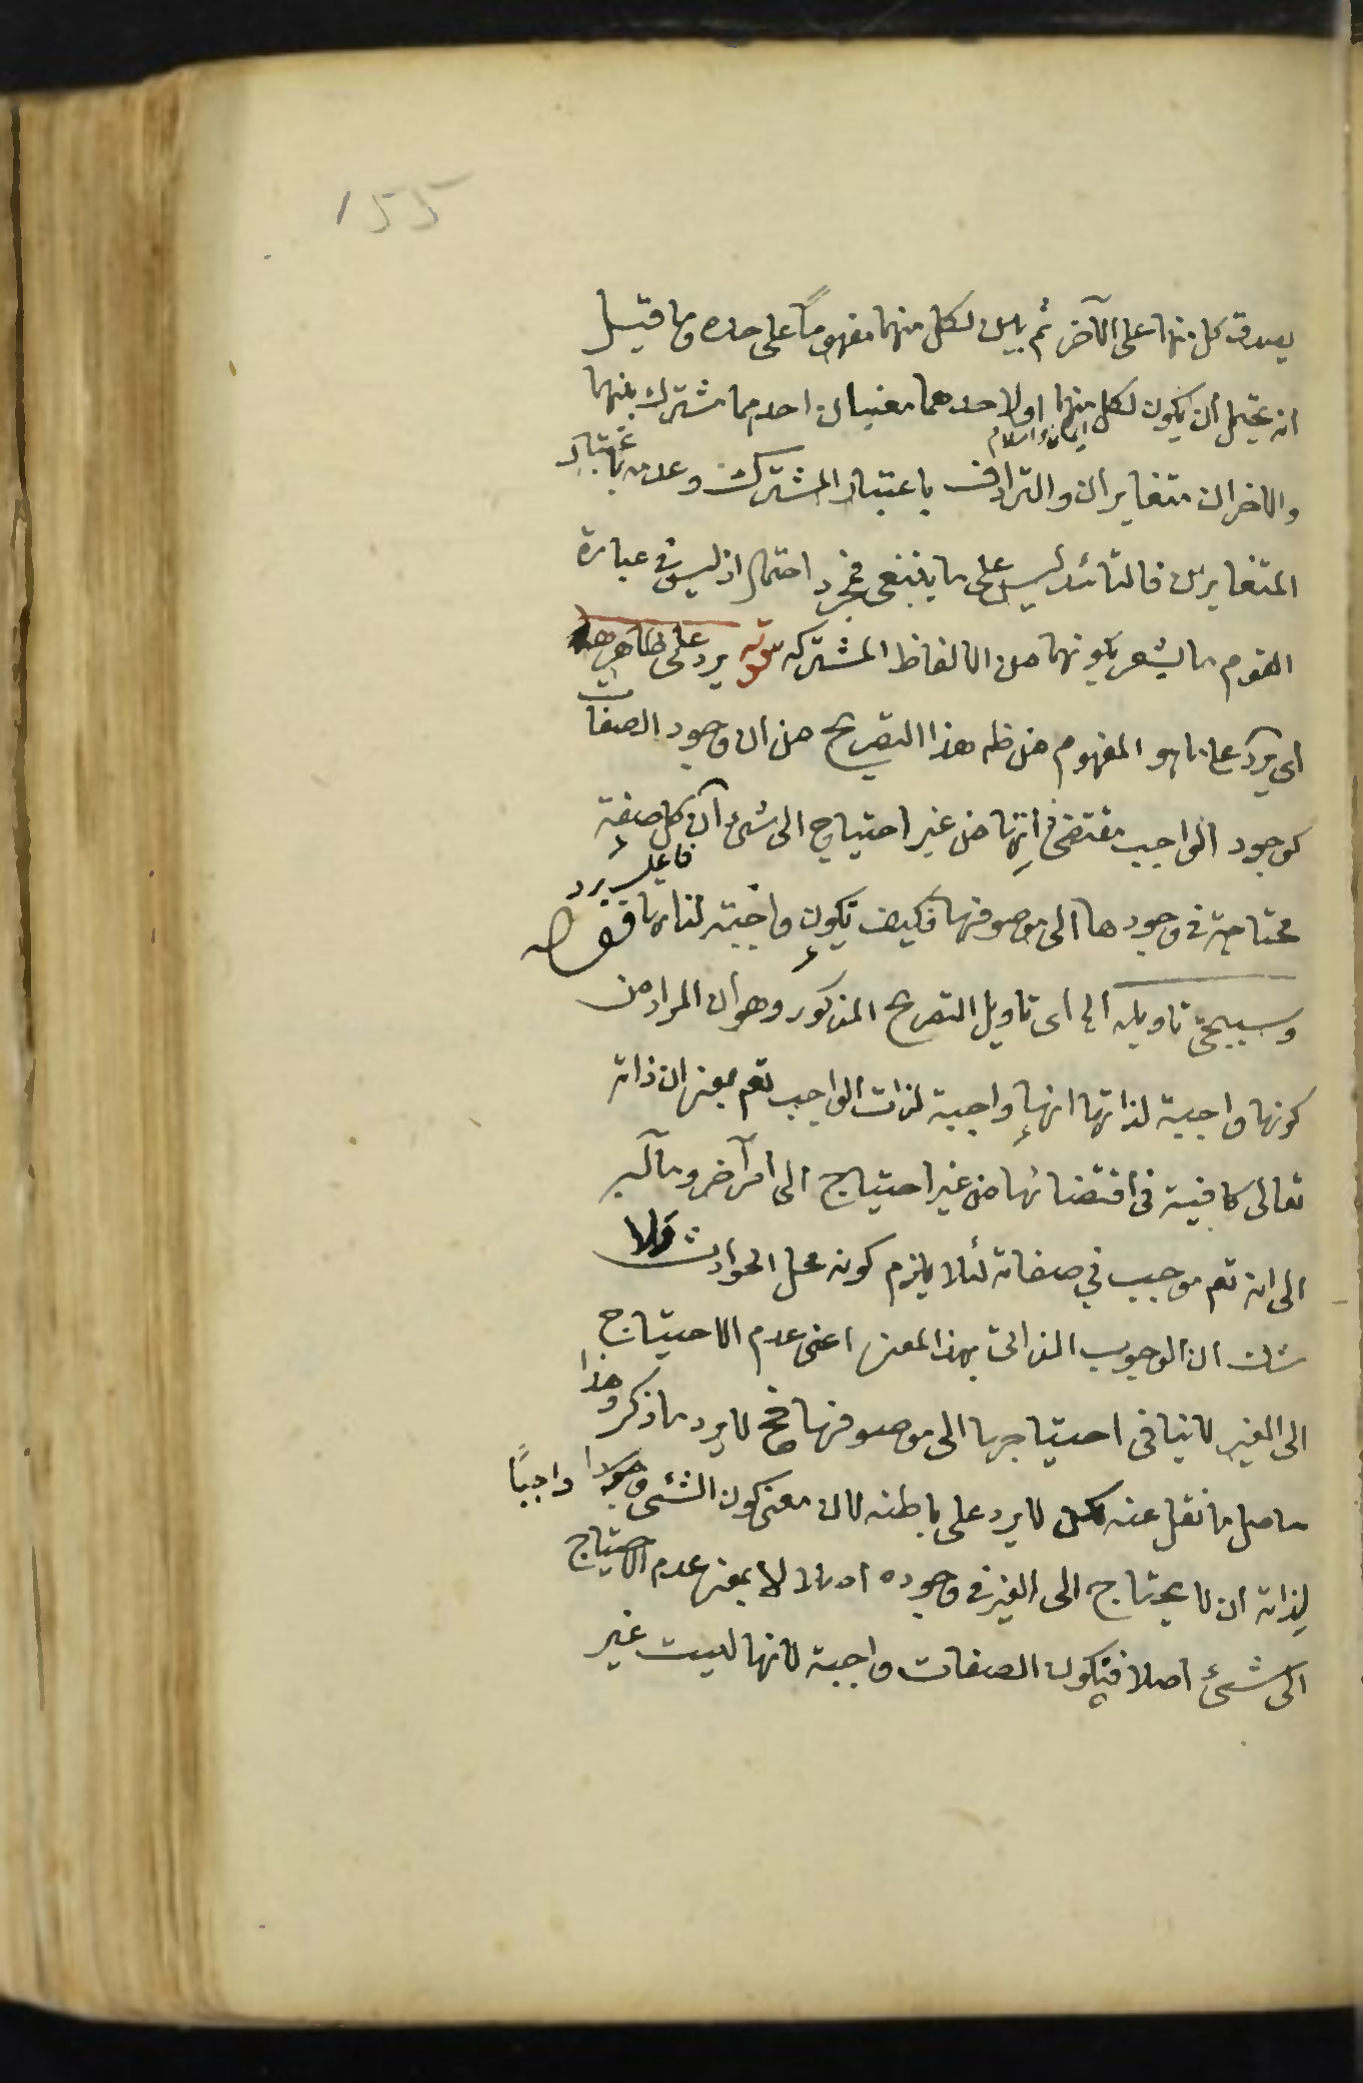 155
يصدق كل منهما على الآخر ثم بين لكل منهما مفهومًا على حده وما قيل
انه يحتمل ان يكون لكل منهما او لاحدهما معنيان احدهما مشترك بينهما
ايمان واسلام
والاخران متغايران والترادف باعتبار المشترك وعدمه باعتبار
المتغايرين فالتائيد ليس على ما ينبغي فمجرد احتمال اذ ليس في عبارة
القوم ما يشعر بكونهما من الالفاظ المشتركه قوله يرد على ظاهر هذا
اى يرد على ما هو المفهوم من ظه هذا التصريح من ان وجود الصفات
كوجود الواجب مقتضى ذاتها من غير احتياج الى شئ ان كل صفة
فاعل يرد
محتاجة في وجودها الى موصوفها فكيف تكون واجبة لذاتها
وسيجئ تاويله الخ اى تاويل التصريح المذكور وهو ان المراد من
كونها واجبية لذاتها انها واجبة لذات الواجب تعم بمعنى ان ذاته
تعالى كافية في اقتضائها من غير احتياج الى امر آخر ومآله
الى انه تعم موجب في صفاته لئلا يلزم كونه محل الحوادث ولا
شك ان الوجوب الذاتى بهذا المعنى اعنى عدم الاحتياج
الى الغير لا ينافى احتياجها الى موصوفها فح لا يرد ما ذكر وهذا
حاصل ما نقل عنه لا يرد على باطنه لان معنى كون الشئ واجبًا
لذاته ان لا يحتاج الى الغير في وجوده لا بمعنى عدم الاحتياج
الى شئ اصلا فتكون الصفات واجبة لانها ليست غير